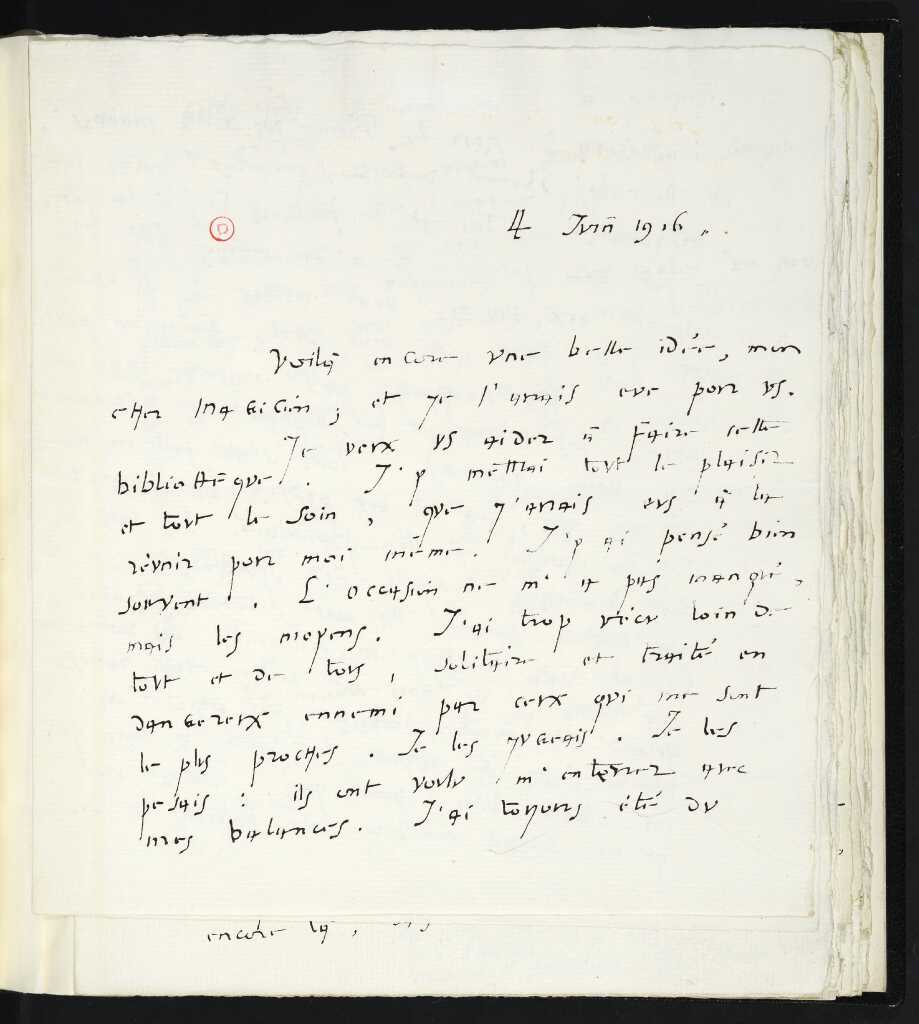 D
4 Juin 1916.
Voilà encore une belle idée, mon
cher Magicien ; et je l'aurais eue pour vs.
Je veux vs aider à faire cette
bibliothèque. J'y mettrai tout le plaisir
et tout le soin, que j'aurais eus à la
réunir pour moi même. J'y ai pensé bien
souvent. L'occasion ne m'a pas manqué,
mais les moyens. J'ai trop vécu loin de
tout et de tous, solitaire et traité en
dangereux ennemi par ceux qui me sont
le plus proches. Je les jugeais. Je les
pesais : ils ont voulu m'enterrer avec
mes balances. J'ai toujours été du
encore là,